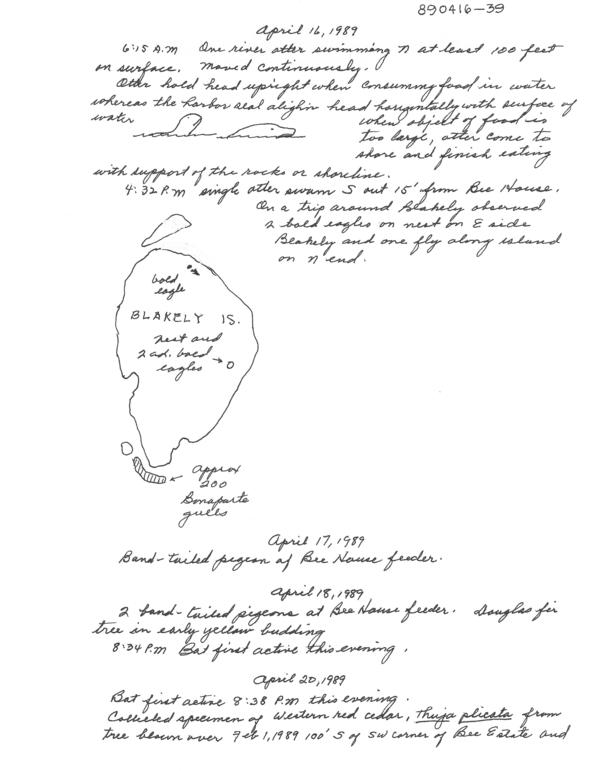 890416-39
April 16, 1989
6:15 A.M One river otter swimming N at least 100 feet
on surface. Moved continuously.
Otter hold head upright when consumming food in water
whereas the harbor seal alighn head horizontally with surface of
water
when object of food is
too large, otter come to
shore and finish eating
with support of the rocks or shoreline.
4:32 P.M single otter swam S out 15' from Bee House.
On a trip around Blakely observed
2 bald eagles on nest on E side
Blakely and one fly along island
on N end.
bald
eagle
BLAKELY IS.
nest and
2 ad. bald
eagles
approx
200
Bonaparte
gulls
April 17, 1989
Band-tailed pigeon at Bee House feeder.
April 18, 1989
2 band-tailed pigeons at Bee House feeder. Douglas fir
tree in early yellow budding
8:34 P.M Bat first active this evening.
April 20, 1989
Bat first active 8:38 P.M this evening.
Collected specimen of Western red cedar, Thuja plicata from
tree blown over Feb 1, 1989 100' S of SW corner of Bee Estate and